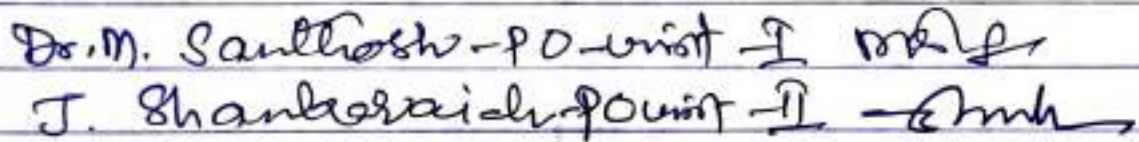 Dr. M. Santhosh - PO-unit - I
J. Shankaraiah - PO unit - II